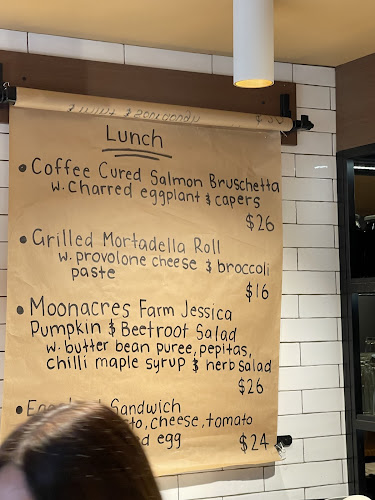 Lunch
• Coffee Cured Salmon Bruschetta
w. charred eggplant & capers
$26
• Grilled Mortadella Roll
w. provolone cheese & broccoli
paste
$16
• Moonacres Farm Jessica
Pumpkin & Beetroot Salad
w. butter bean puree, pepitas,
chilli maple syrup & herb salad
$26
• Sandwich
cheese, tomato
egg $24